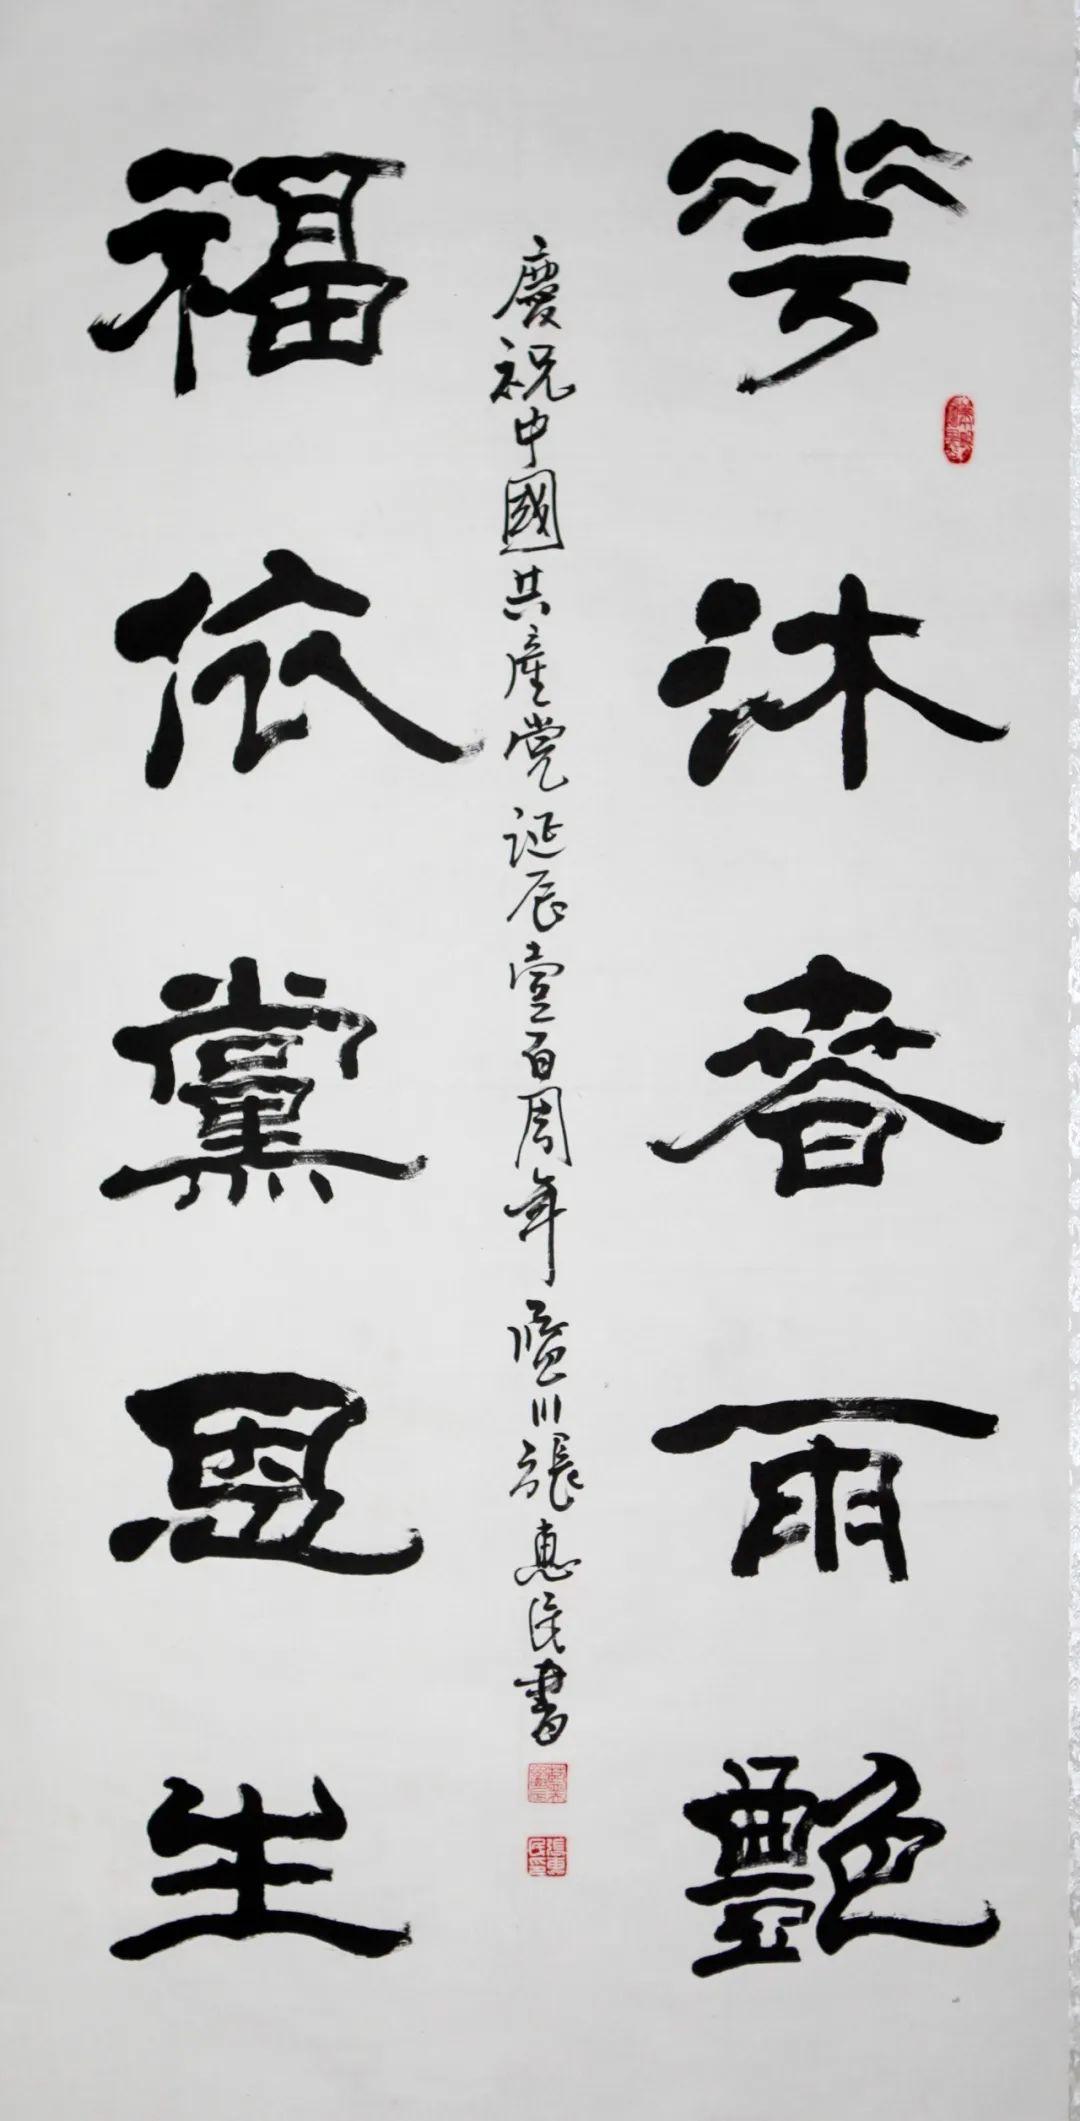 花沐春雨艷
福依黨恩生
慶祝中國共產党诞辰壹百周年 川張惠民書